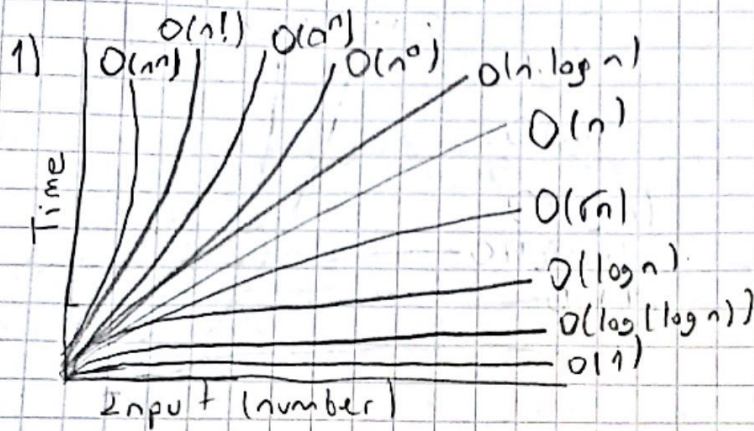 1)
O(n^n)
O(n!)
O(a^n)
O(n^a)
O(n.log n)
O(n)
O(√n)
O(log n)
O(log(log n))
O(1)
Time
Input (number)